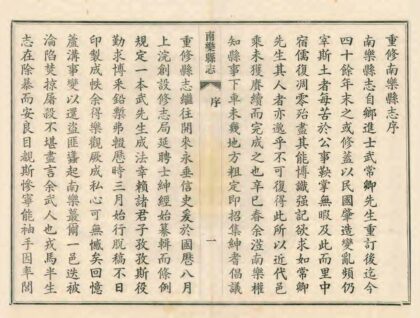 重修南樂縣志序
南樂縣志自鄉進士武常卿先生重訂後迄今
四十餘年未之或修蓋以民國肇造變亂頻仍
宰斯土者每苦於公事鞅掌無暇及此而里中
宿儒復凋零殆盡其能博識强記欲求如常卿
先生其人者亦邈乎不可復得此所以近代邑
乘未獲賡續而完成之也辛巳春余涖南樂權
知縣事下車未幾地方粗定即招集紳耆倡議
南樂縣志
序
一
重修縣志繼往開來永垂信史爰於國曆八月
上浣創設修志局延聘士紳經始纂輯而條例
規定一本武先生成法幸賴諸君子孜孜斯役
勤求博采鉛槧弗輟曆時三月始行脫稿不日
印製成帙余得樂觀厥成私心可無憾矣回憶
蘆溝事變以還盜匪蠭起南樂蕞爾一邑迭被
淪陷焚掠屠殺不堪盡言余武人也戎馬半生
志在除暴而安良目覩斯慘寧能袖手因率閤